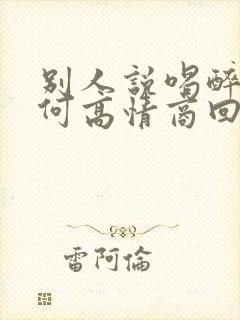 别人説喝醉
何高情商回
雷阿倫